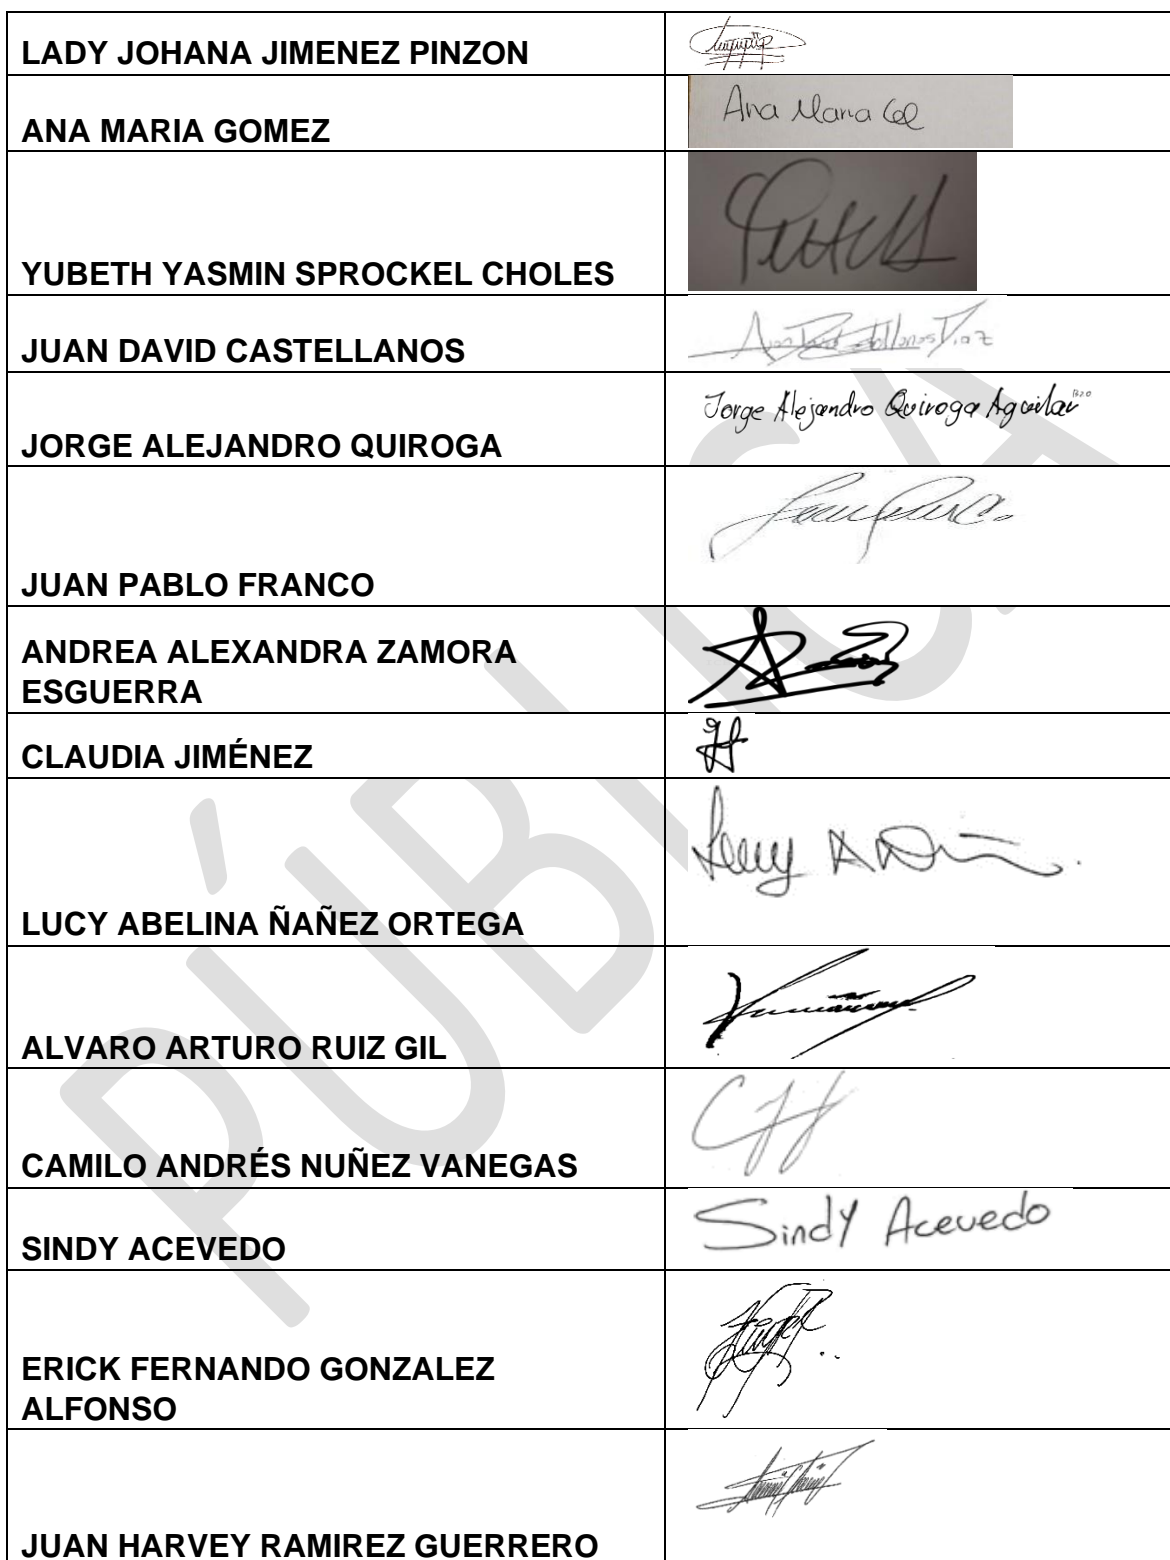 LADY JOHANA JIMENEZ PINZON
ANA MARIA GOMEZ
Ana Maria
YUBETH YASMIN SPROCKEL CHOLES
JUAN DAVID CASTELLANOS
Juan David Castellanos Diaz
JORGE ALEJANDRO QUIROGA
Jorge Alejandro Quiroga Aguilar
JUAN PABLO FRANCO
ANDREA ALEXANDRA ZAMORA
ESGUERRA
CLAUDIA JIMÉNEZ
LUCY ABELINA ÑAÑEZ ORTEGA
Lucy
ALVARO ARTURO RUIZ GIL
CAMILO ANDRÉS NUÑEZ VANEGAS
SINDY ACEVEDO
Sindy Acevedo
ERICK FERNANDO GONZALEZ
ALFONSO
JUAN HARVEY RAMIREZ GUERRERO
PÚBLICA